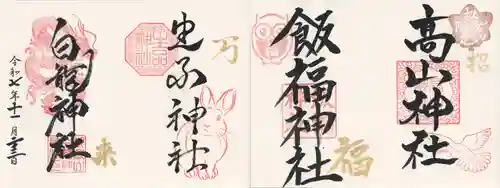 高山神社
招
飯福神社
福
出不神社
万
白龍神社
来
令和七年十一月二十三日